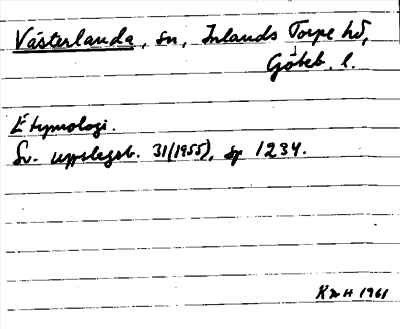 Västerlanda, sn, Inlands Torpe hd,
Göteb. l.
Etymologi.
Sv. uppslagsb. 31(1955), sp 1234.
KmH 1961